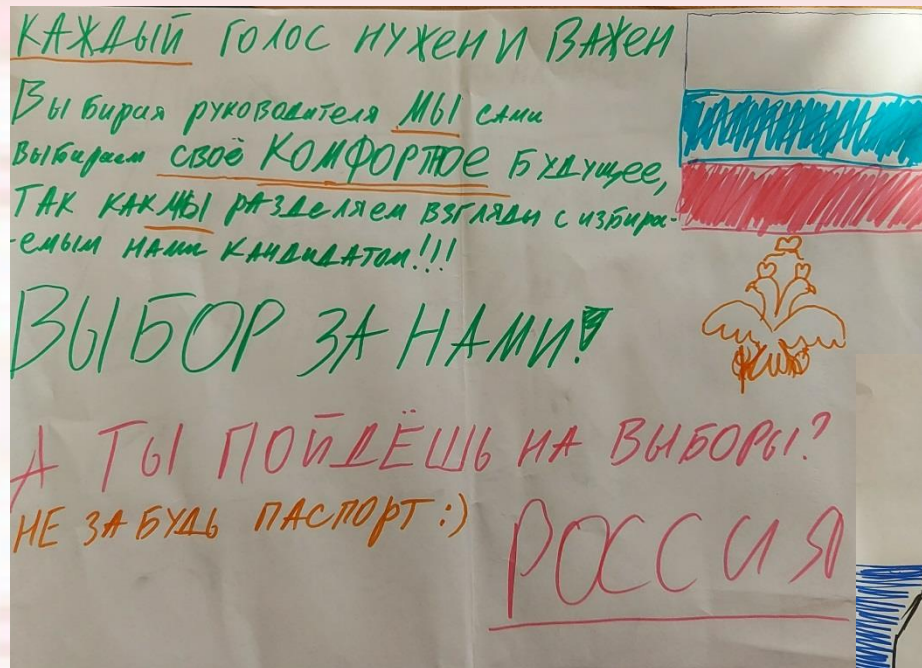 КАЖДЫЙ ГОЛОС НУЖЕН И ВАЖЕН
Выбирая руководителя МЫ сами
выбираем своё КОМФОРТОЕ БУДУЩЕЕ,
ТАК КАК МЫ РАЗДЕЛЯЕМ ВЗГЛЯДЫ С избира-
-емым НАМИ КАНДИДАТОМ!!!
ВЫБОР ЗА НАМИ!
А ТЫ ПОЙДЁШЬ НА ВЫБОРЫ?
НЕ ЗАБУДЬ ПАСПОРТ:)
РОССИЯ